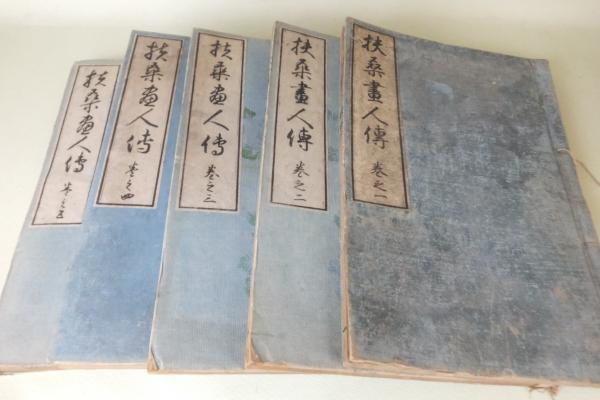 扶桑畫人傳 巻之一
扶桑畫人傳 巻之二
扶桑畫人傳 巻之三
扶桑畫人傳 巻之四
扶桑畫人傳 巻之五